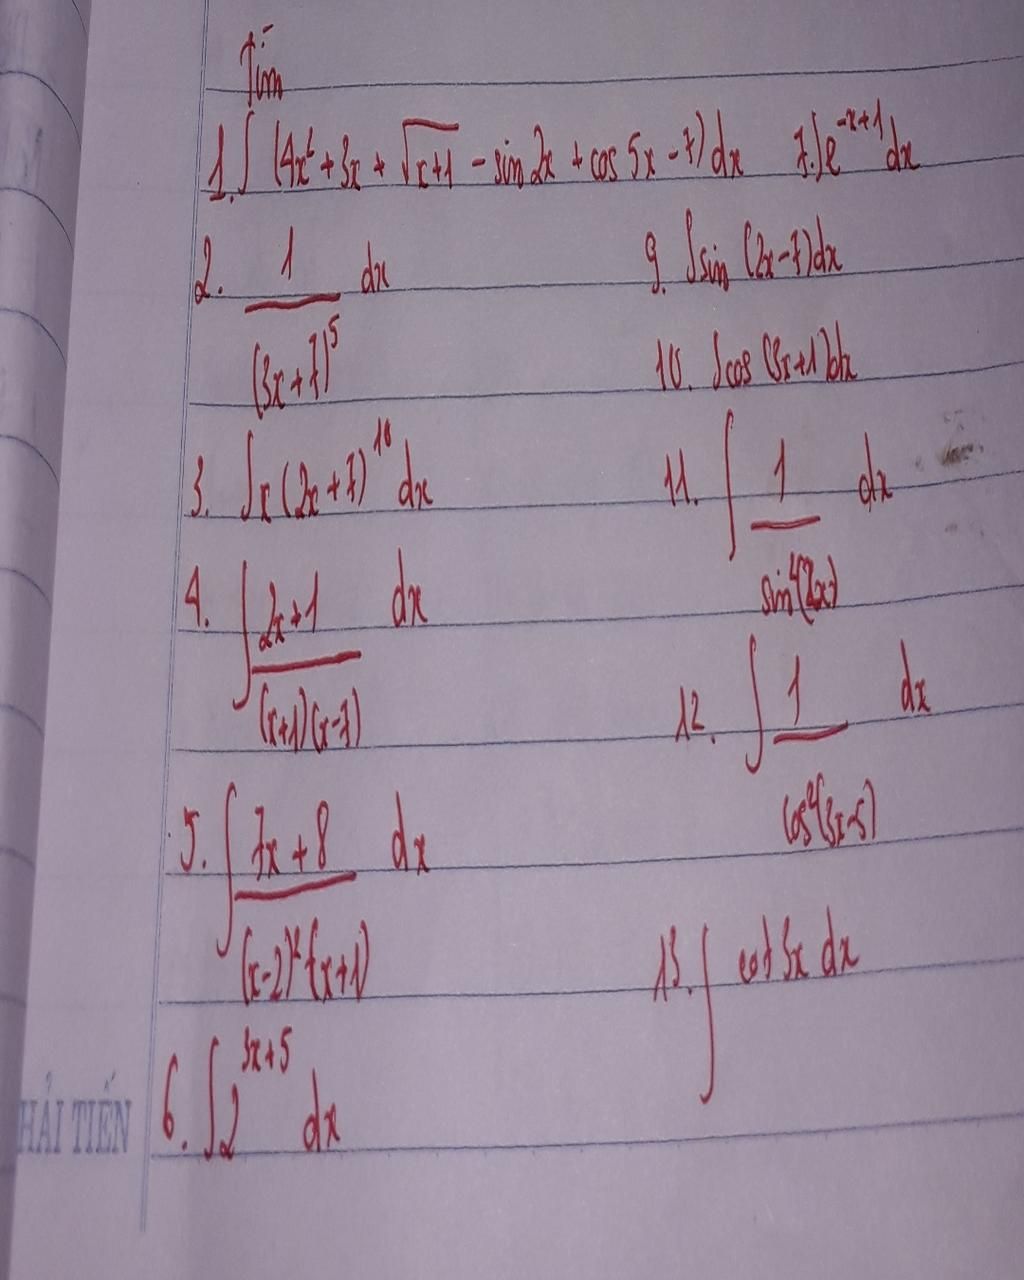 Tìm
1. ∫ (4x² + 3x + √x+1 - sin 2x + cos 5x - 7) dx
7. ∫ e^(-x+1) dx
2. 1/(3x+7)^5 dx
9. ∫ sin (2x-7) dx
10. ∫ cos (3x+1) dx
3. ∫ x (2x+7)^10 dx
11. ∫ 1/sin²(2x) dx
4. ∫ (2x+1)/((x+1)(x-7)) dx
12. ∫ 1/cos²(3x-5) dx
5. ∫ (7x+8)/((x-2)²(x+1)) dx
13. ∫ cot 3x dx
6. ∫ 2^(3x+5) dx
HẢI TIẾN